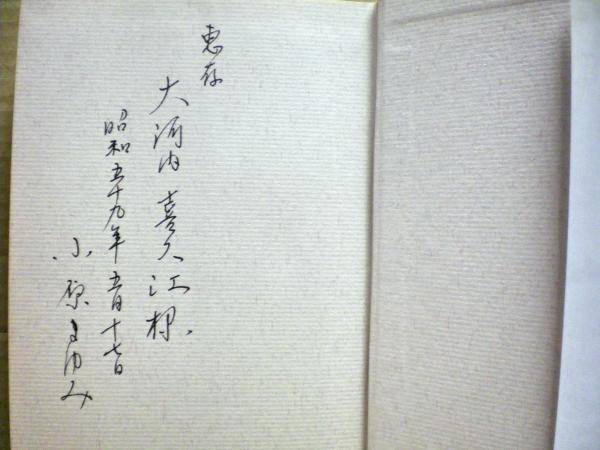 恵存
大河内喜久江様
昭和五十九年五月十七日
小原まゆみ